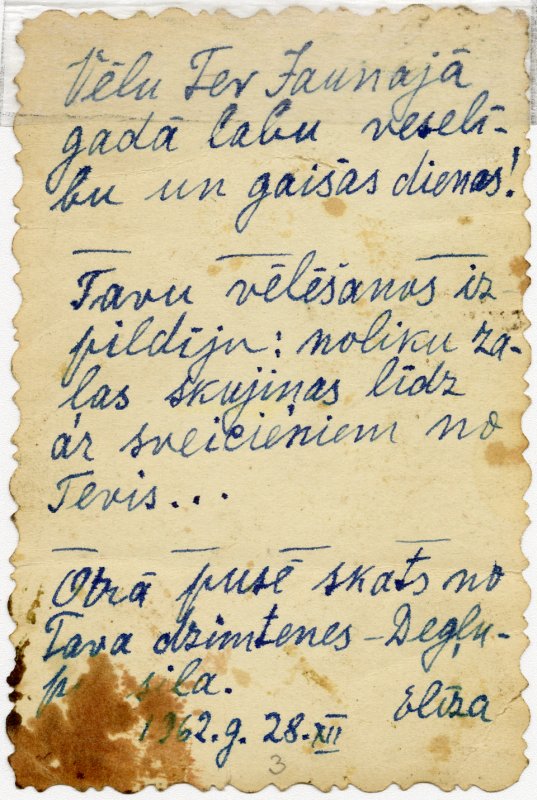 Vēlu Tev Jaunajā
gadā labu veselī-
bu un gaišas dienas!
Tavu vēlēšanos iz
pildīju: noliku za-
ļas skujiņas līdz
ar sveicieniem no
Tevis...
Otrā pusē skats no
Tava dzimtenes - Degļu-
sila.
Elīza
1962.g. 28.XII
3